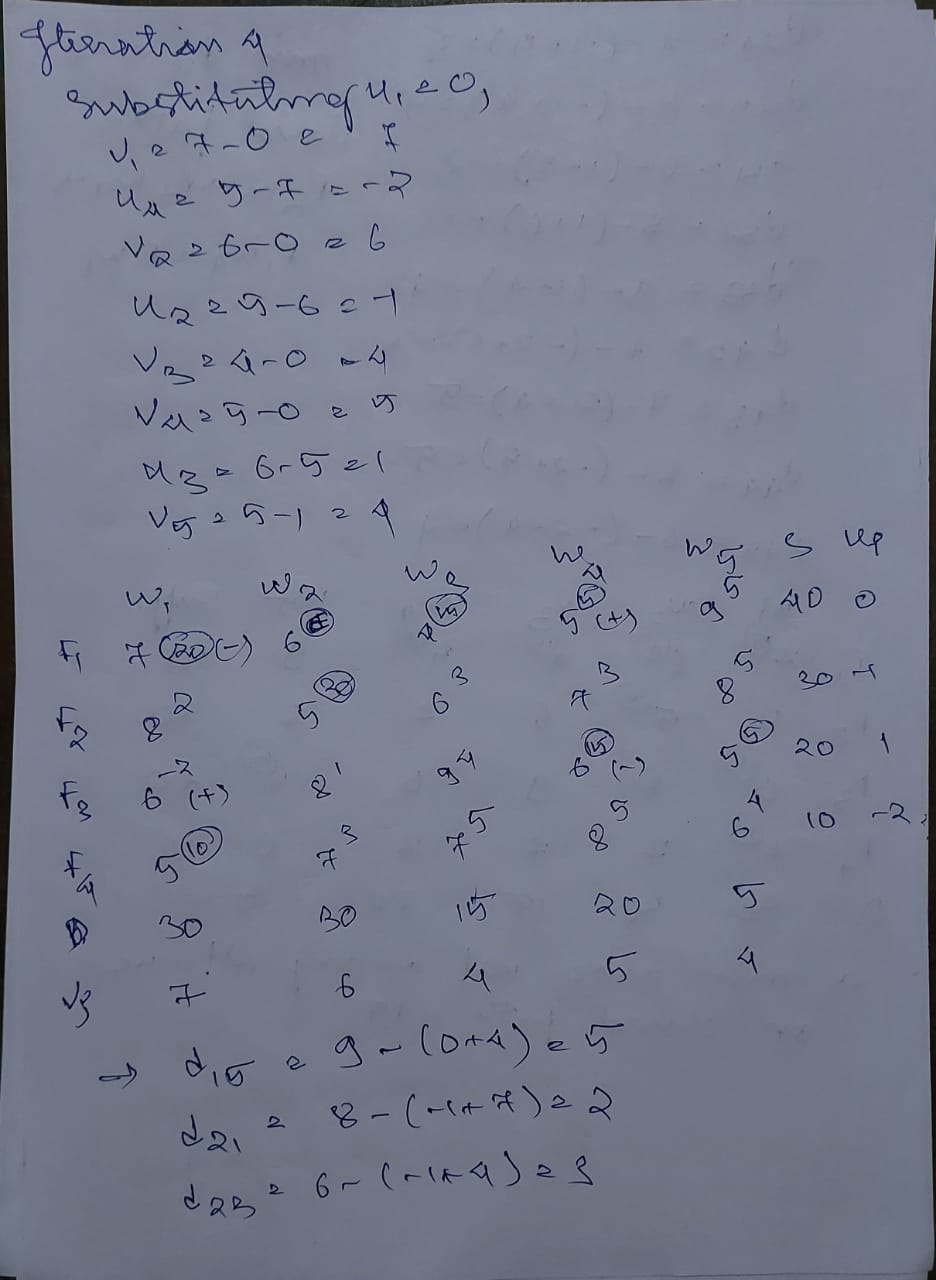 Iteration 4
Substituting u₁ = 0,
V₁ = 7-0 = 7
U₄ = 5-7 = -2
V₂ = 6-0 = 6
U₂ = 5-6 = -1
V₃ = 4-0 = 4
V₄ = 5-0 = 5
U₃ = 6-5 = 1
V₅ = 5-1 = 4
W₁ W₂ W₃ W₄ W₅ S
F₁ 7 (20) (-) 6 4 (15) 5 (5) (+) 9 5 40 0
F₂ 8 2 5 (30) 6 3 7 3 8 5 30 -1
F₃ 6 -2 (+) 8 1 9 4 6 (15) (-) 5 (5) 20 1
F₄ 5 (10) 7 3 7 5 8 5 6 4 10 -2
D 30 30 15 20 5
Vj 7 6 4 5 4
→ d₁₅ = 9 - (0+4) = 5
d₂₁ = 8 - (-1+7) = 2
d₂₃ = 6 - (-1+4) = 3